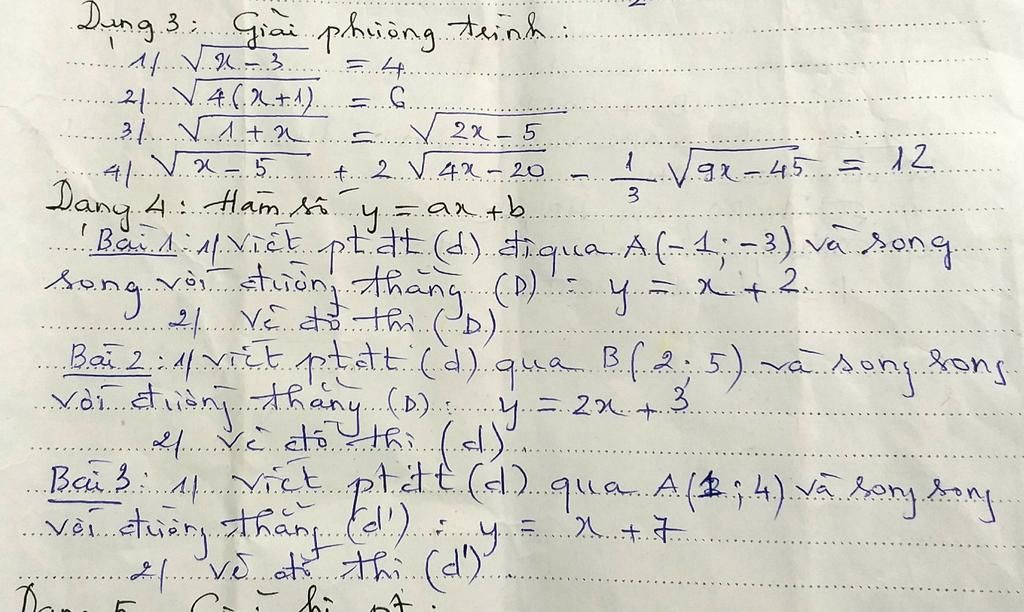 Dạng 3: Giải phương trình:
1/ √(x-3) = 4
2/ √(4(x+1)) = 6
3/ √(1+x) = √(2x-5)
4/ √(x-5) + 2√(4x-20) - 1/3 √(9x-45) = 12
Dạng 4: Hàm số y = ax+b
Bài 1: 1/ Viết ptđt (d) đi qua A(-1;-3) và song
song với đường thẳng (D): y = x + 2.
2/ Vẽ đồ thị (D)
Bài 2: 1/ viết ptđt (d) qua B(2;5) và song song
với đường thẳng (D): y = 2x + 3
2/ vẽ đồ thị (d)
Bài 3: 1/ viết ptđt (d) qua A(1;4) và song song
với đường thẳng (d'): y = x + 7
2/ vẽ đồ thị (d')
Dạng 5